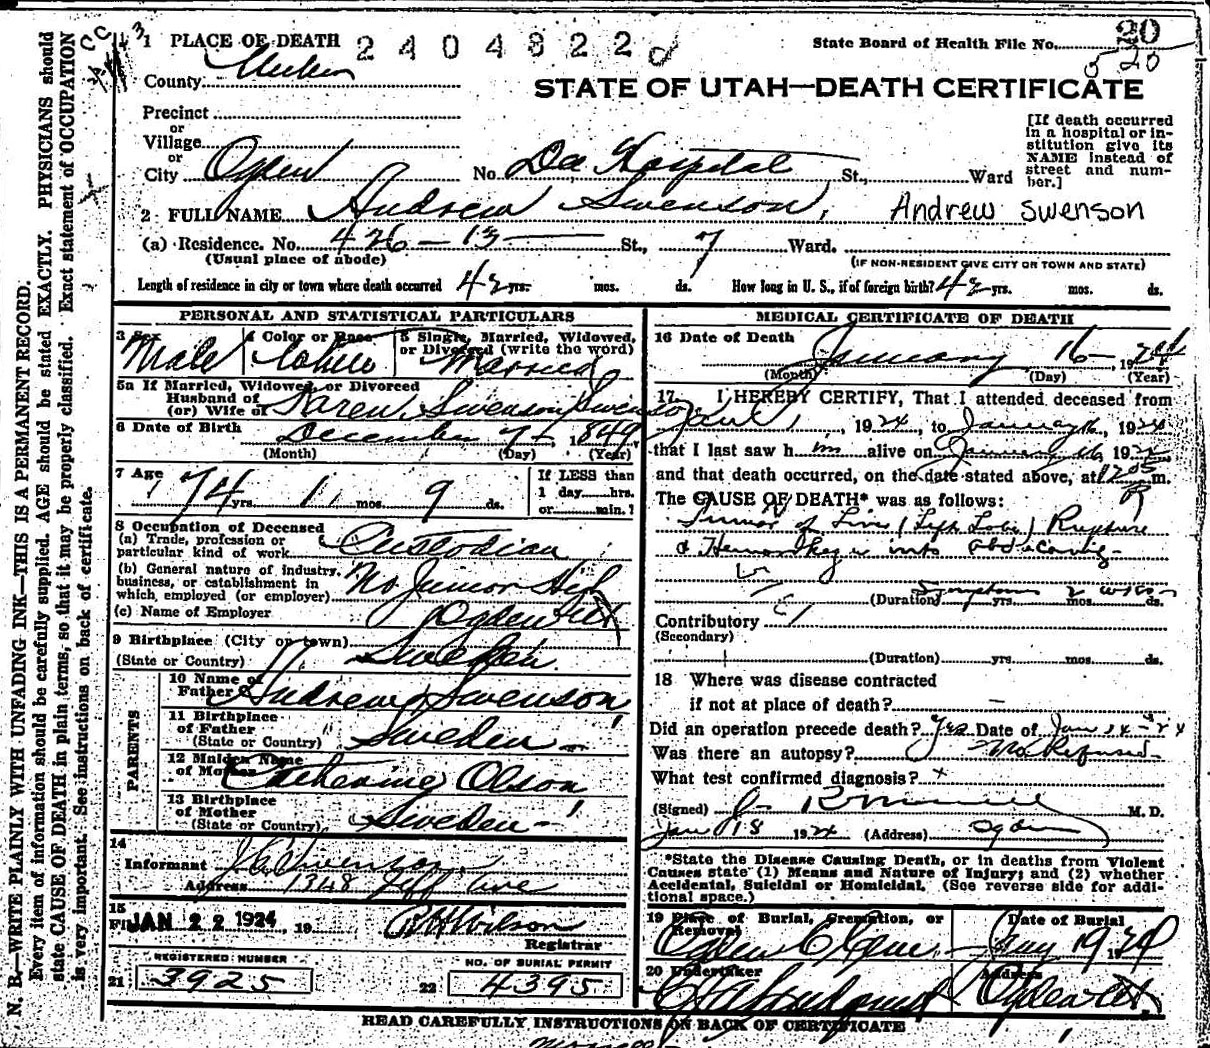 N. B.—WRITE PLAINLY WITH UNFADING INK—THIS IS A PERMANENT RECORD.
Every item of information should be carefully supplied. AGE should be stated EXACTLY. PHYSICIANS should
state CAUSE OF DEATH in plain terms, so that it may be properly classified. Exact statement of OCCUPATION
is very important. See instructions on back of certificate.
1 PLACE OF DEATH 2404822
State Board of Health File No. 20
5 20
County Weber
STATE OF UTAH—DEATH CERTIFICATE
Precinct
or
Village
or
City Ogden No. Dee Hospital St., Ward
[If death occurred
in a hospital or in-
stitution give its
NAME instead of
street and num-
ber.]
2 FULL NAME Andrew Swenson, Andrew Swenson
(a) Residence. No. 426 - 13 St., 7 Ward.
(Usual place of abode)
(IF NON-RESIDENT GIVE CITY OR TOWN AND STATE)
Length of residence in city or town where death occurred 42 yrs. mos. ds. How long in U. S., if of foreign birth? 42 yrs. mos. ds.
PERSONAL AND STATISTICAL PARTICULARS
3 Sex Male
4 Color or Race White
5 Single, Married, Widowed,
or Divorced (write the word)
Married
5a If Married, Widowed, or Divorced
Husband of
(or) Wife of Karen Swenson Swenson
6 Date of Birth
December 7, 1849
(Month) (Day) (Year)
7 Age
74 yrs. 1 mos. 9 ds.
If LESS than
1 day hrs.
or min.?
8 Occupation of Deceased
(a) Trade, profession or
particular kind of work Custodian
(b) General nature of industry,
business, or establishment in
which employed (or employer) No Junior High
(c) Name of Employer Ogden Utah
9 Birthplace (City or town)
(State or Country) Sweden
PARENTS
10 Name of
Father Andrew Swenson
11 Birthplace
of Father
(State or Country) Sweden
12 Maiden Name
of Mother Catherine Olson
13 Birthplace
of Mother
(State or Country) Sweden
14
Informant Swenson
Address 1348 Jeff Ave
15
JAN 22 1924, 19 Wilson
Registrar
REGISTERED NUMBER
21 3925
NO. OF BURIAL PERMIT
22 4395
MEDICAL CERTIFICATE OF DEATH
16 Date of Death
January 16, 1924
(Month) (Day) (Year)
17 I HEREBY CERTIFY, That I attended deceased from
Jan 1, 1924, to January 16, 1924
that I last saw h im alive on January 16, 192
and that death occurred, on the date stated above, at 1205 m.
The CAUSE OF DEATH* was as follows:
Tumor of Liver (Left Lobe) Rupture
& Hemorrhage into abd cavity
(Duration) Symptoms yrs. 2 mos. wks ds.
Contributory
(Secondary)
(Duration) yrs. mos. ds.
18 Where was disease contracted
if not at place of death?
Did an operation precede death? Yes Date of Jan 14-24
Was there an autopsy? No Refused
What test confirmed diagnosis?
(Signed) M. D.
Jan 18 1924 (Address) Ogden
*State the Disease Causing Death, or in deaths from Violent
Causes state (1) Means and Nature of Injury; and (2) whether
Accidental, Suicidal or Homicidal. (See reverse side for addi-
tional space.)
19 Place of Burial, Cremation, or
Removal
Date of Burial
Ogden Cem. Jany 19 1924
20 Undertaker
Address
Ogden Utah
READ CAREFULLY INSTRUCTIONS ON BACK OF CERTIFICATE